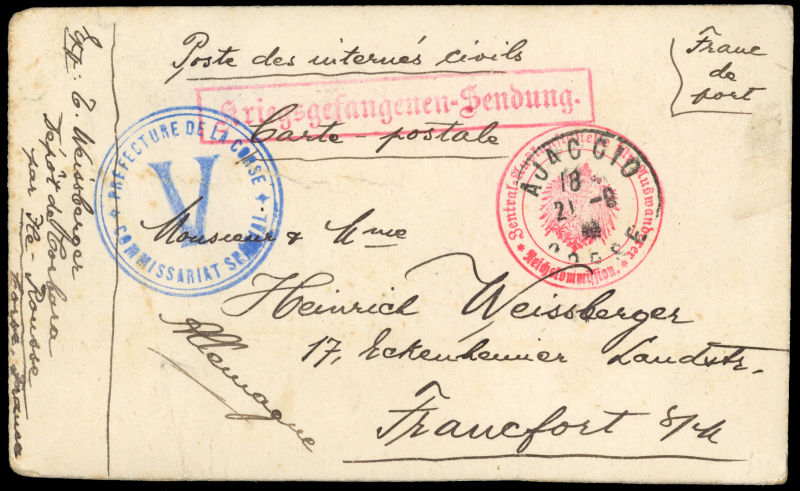 Poste des internés civils
Franc
de
port
Kriegsgefangenen-Sendung.
Carte-postale
PRÉFECTURE DE LA CORSE
V
COMMISSARIAT SPÉCIAL
AJACCIO
18
21 -8
CORSE
Monsieur & Mme
Heinrich Weissberger
17, Eckenheimer Landstr.
Francfort s/M
Allemagne
Exp: E. Weissberger
Dépôt de Corbara
par Ile-Rousse
Corse, France